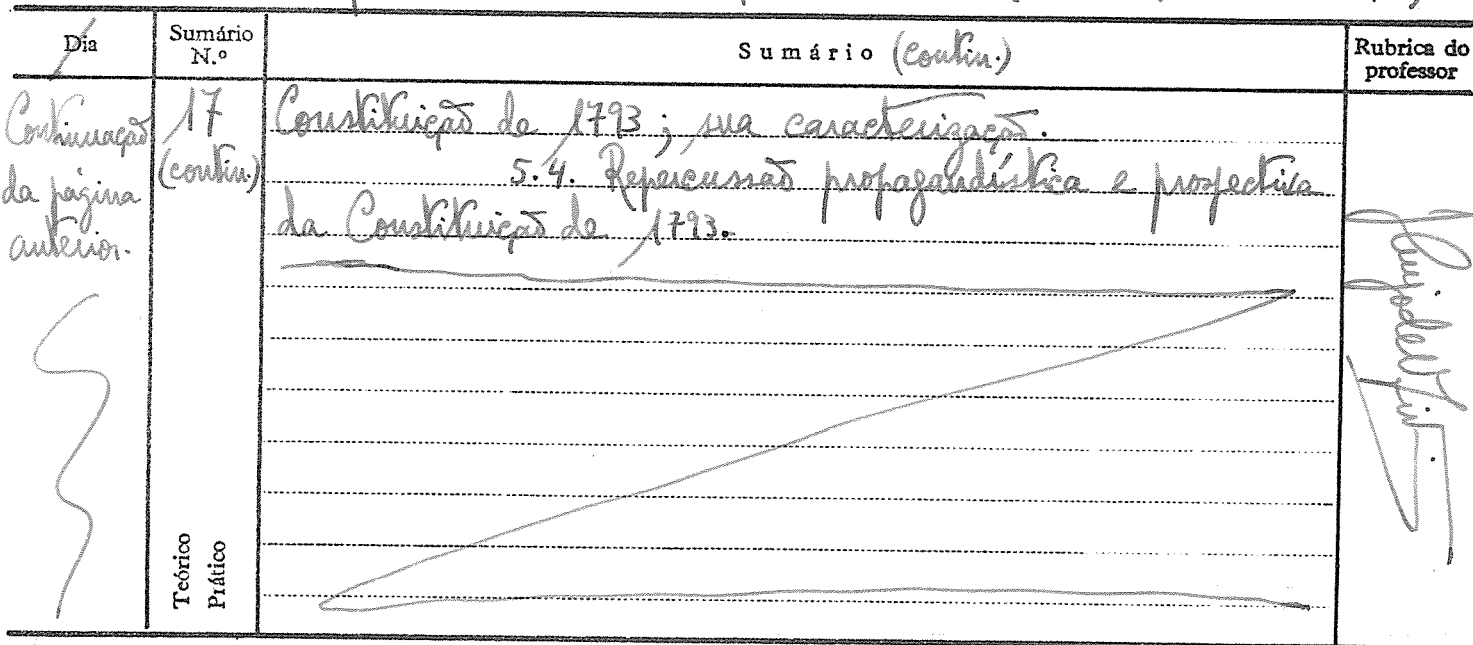 Dia
Sumário N.º
Sumário (contin.)
Rubrica do professor
Continuação da página anterior.
17 (contin.)
Constituição de 1793; sua caracterização.
5.4. Repercussão propagandística e prospectiva
da Constituição de 1793.
Teórico
Prático